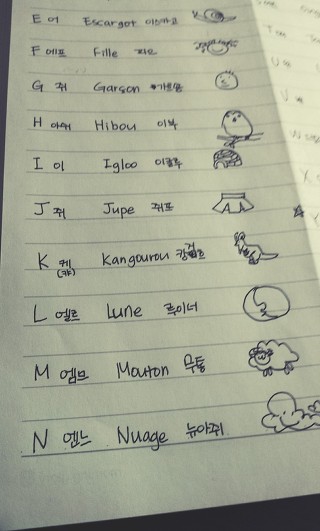 E 어 Escargot 에스까르고
F 에프 Fille 피으
G 줴 Garson 가르쏭
H 아쉬 Hibou 이부
I 이 Igloo 이글루
J 쥐 Jupe 쥐프
K 케 (꺄) Kangourou 캉거루
L 엘르 Lune 루이너
M 엠므 Mouton 무통
N 엔느 Nuage 뉴아쥐